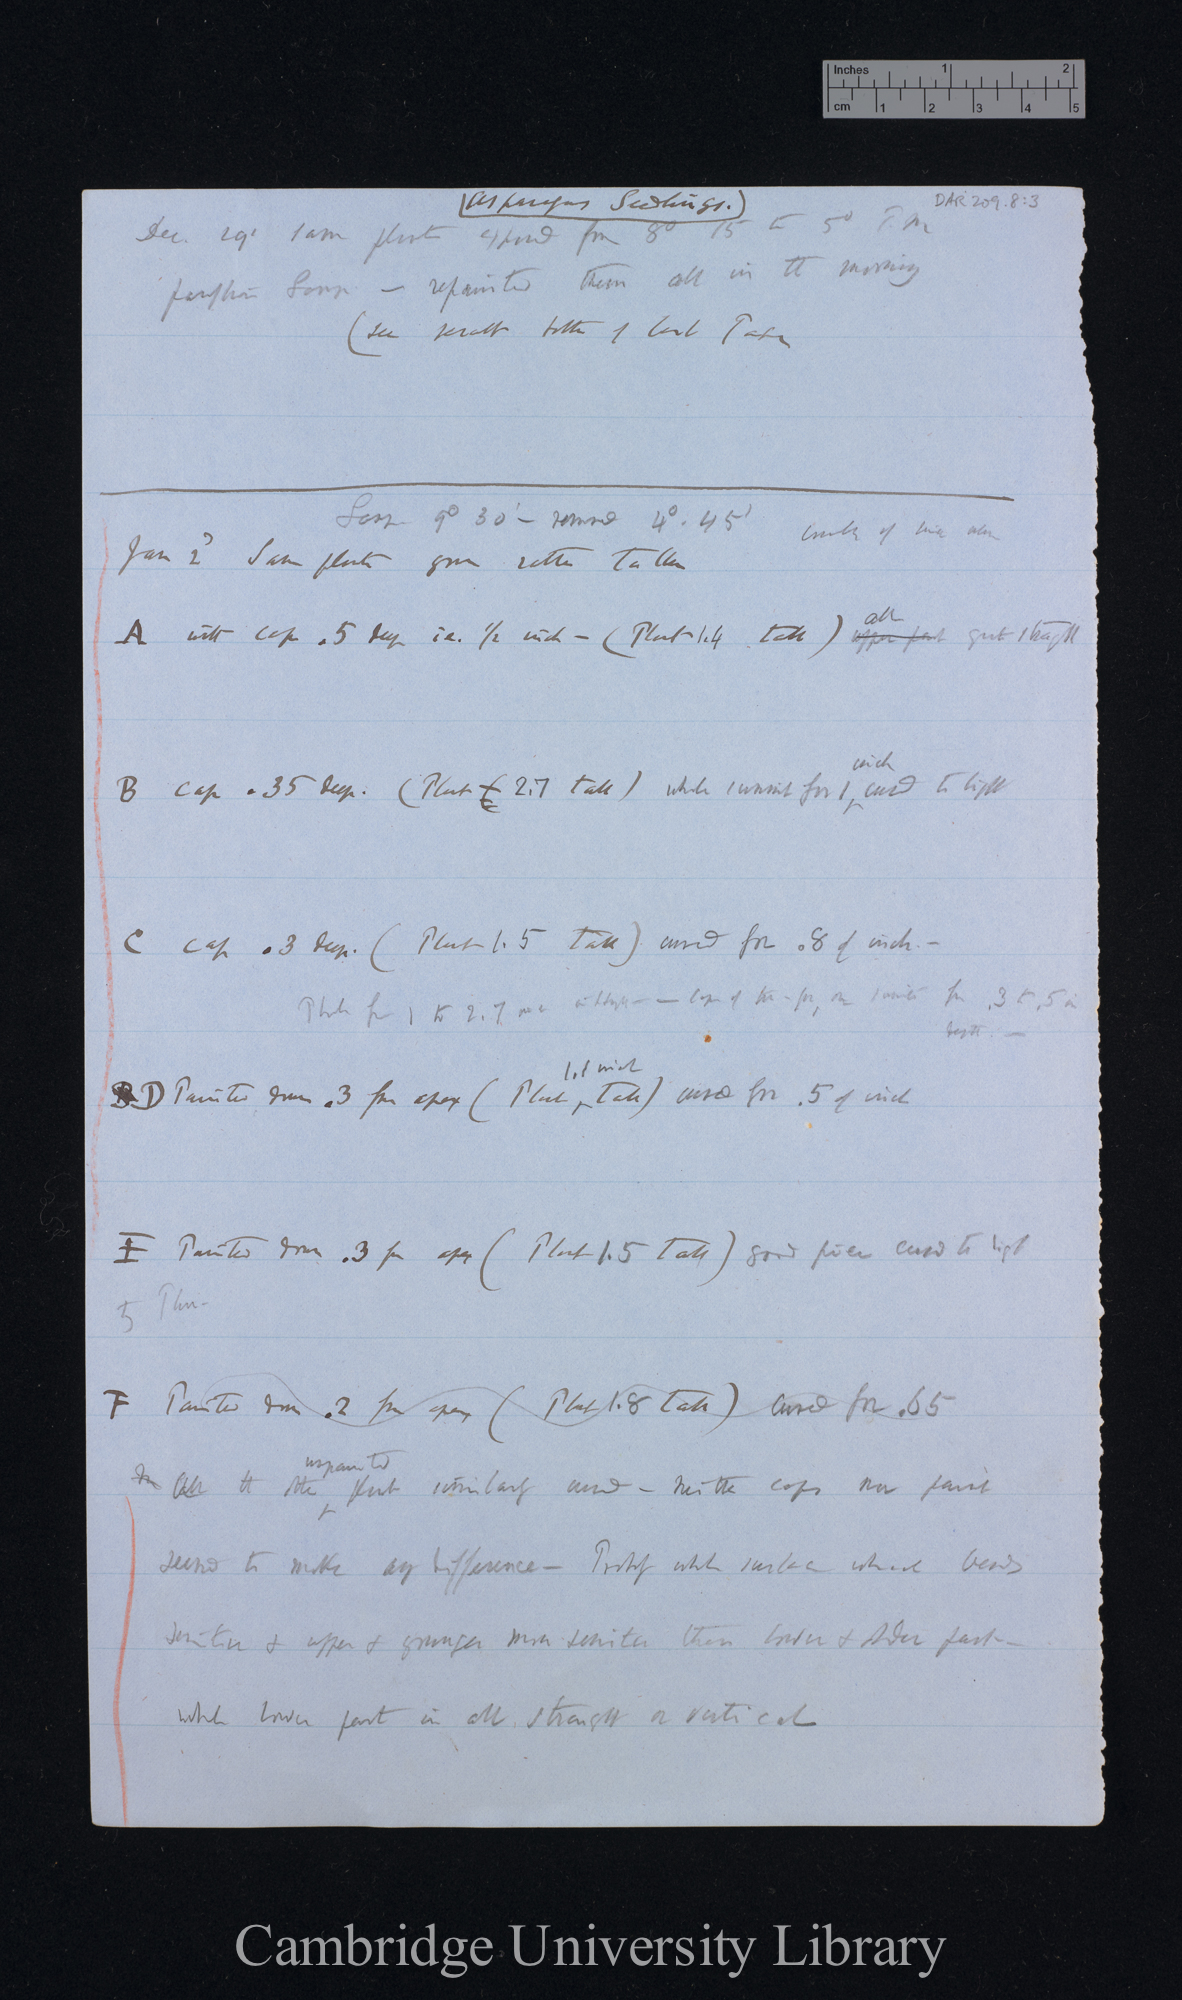 Inches 1 2
cm 1 2 3 4 5
(Asparagus Seedlings.)
DAR 209.8:3
Dec. 29' same plants exposed from 8° 15 to 5° P.m
paraffin Lamp — repainted them all in the morning
(see result bottom of last Page
Lamp 9° 30' — removed 4°. 45'
Jan 2d Same plants grown rather taller
A with cap .5 deep i.e. 1/2 inch — (Plant 1.4 tall) all upper part quite straight
B cap .35 deep. (Plant 2.7 tall) whole summit for 1 inch curved to light
C cap .3 deep. (Plant 1.5 tall) curved for .8 of inch. —
Plants from 1 to 2.7 inch in height — caps of tin-foil, or painted for .3 to .5 in
depth. —
D Painted down .3 from apex (Plant 1.1 inch tall) curved for .5 of inch
E Painted down .3 from apex (Plant 1.5 tall) good piece curved to light
F Painted down .2 from apex (Plant 1.8 tall) curved for .65
All the other unpainted plants similarly curved — neither caps nor paint
seemed to make any difference — Probably whole surface which bends
sensitive & upper & younger more sensitive than lower & older part —
while lower part in all straight or vertical
Cambridge University Library